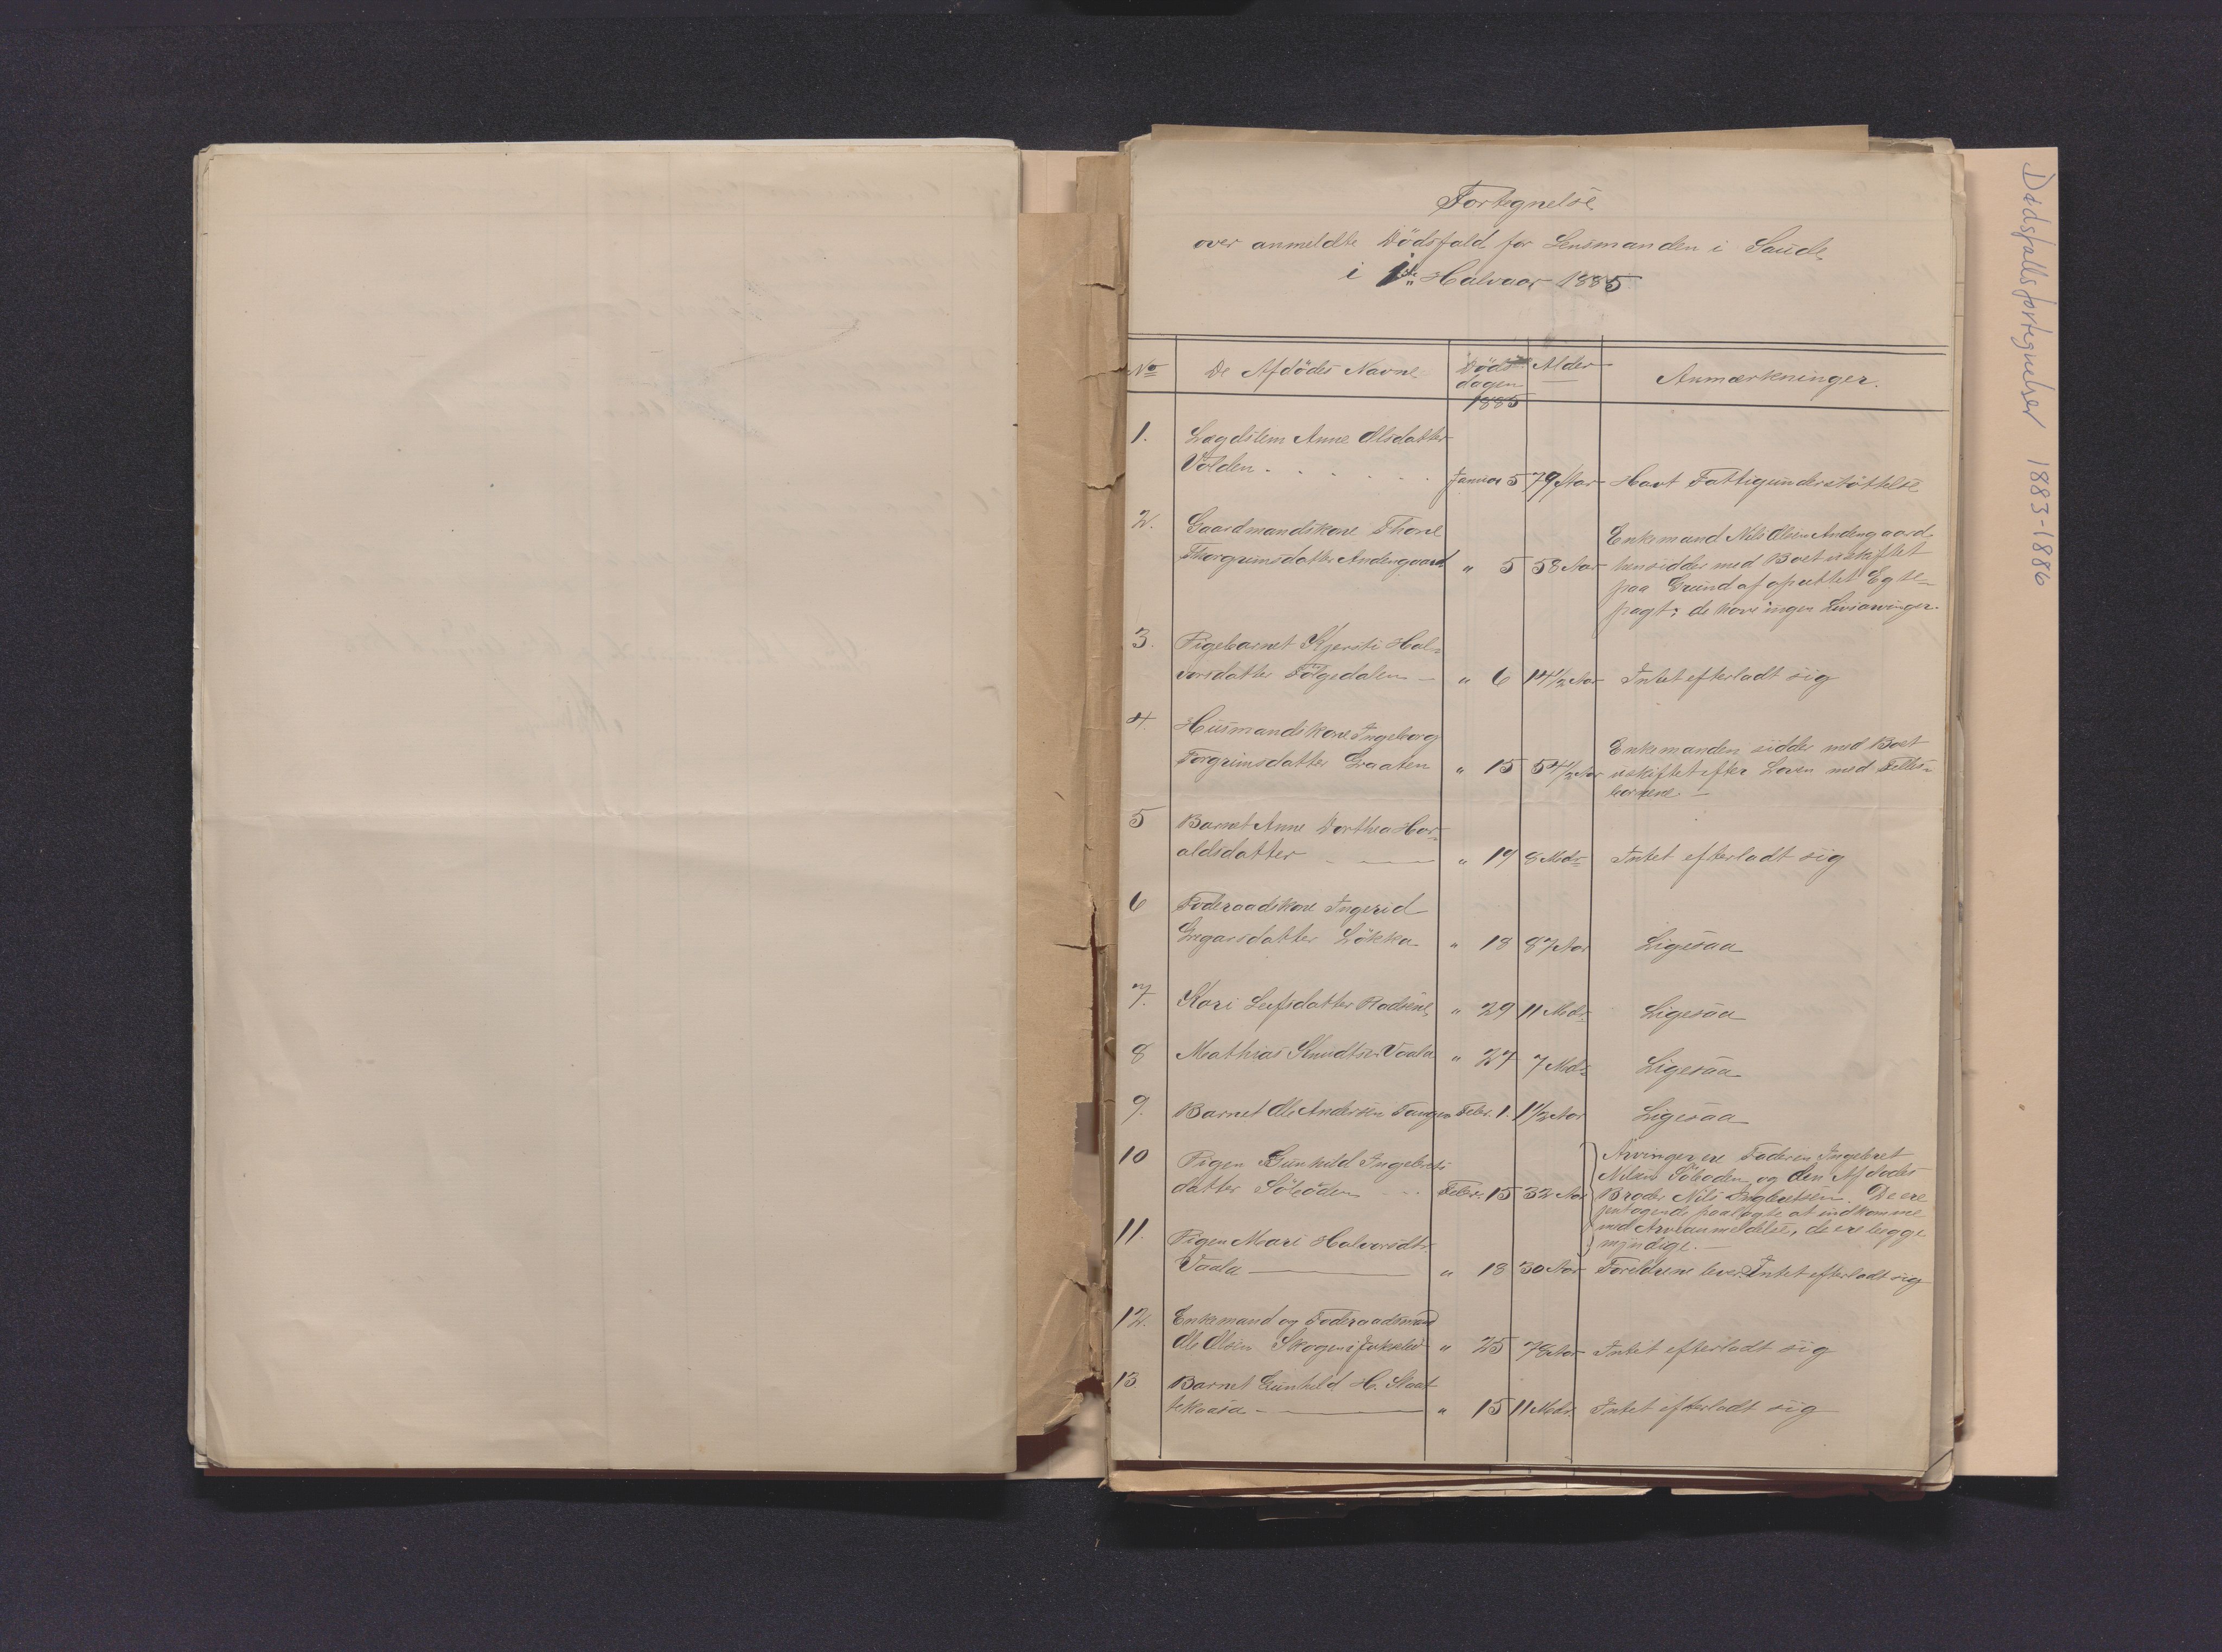 Fortegnelse
over anmeldte Dödsfald for Lensmanden i Saude
i 1ste Halvaar 1885
No De Afdödes Navne Döds dagen 1885 Alder Anmærkninger.
1. Lægdslem Anne Olsdatter
Volden Januar 5 79 Aar Havt Fattigunderstöttelse
2. Gaardmandskone Thone
Thorgrimsdatter Andengaard " 5 58 Aar
Enkemand Nils Olsen Andengaard
hensidder med Boet uskiftet
paa Grund af oprettet Egte-
pagt; de have ingen Livsarvinger.
3. Pigebarnet Kjersti Hal-
vorsdatter Fölgedalen " 6 14 1/2 Aar Intet efterladt sig
4. Husmandskone Ingeborg
Torgrimsdatter Graaten " 15 54 1/2 Aar
Enkemanden sidder med Boet
uskiftet efter Loven med Felles-
börnene.
5 Barnet Anne Dorthea Har-
aldsdatter " 19 8 Mdr Intet efterladt sig
6 Föderaadskone Ingerid
Gregarsdatter Lökka " 18 87 Aar Ligesaa
7. Kari Leifsdatter " 29 11 Mdr Ligesaa
8 Mathias Knudtsen Vaala " 27 7 Mdr Ligesaa
9. Barnet Ole Andersen Tangen Febr. 1. 1 1/2 Aar Ligesaa
10 Pigen Gunhild Ingebrets
datter Söboden Febr. 15 32 Aar
Arvinger ere Faderen Ingebret
Nilsen Söboden og den Afdödes
Broder Nils Ingebretsen. De ere
paalagte at indkomme
med Arveanmeldelse, de ere begge
myndige.
11. Pigen Mari Halvorsdtr.
Vaala " 18 30 Aar Forældrene lever. Intet efterladt sig
12. Enkemand og Föderaadsmand
Ole Olsen Skogen i " 25 78 Aar Intet efterladt sig
13 Barnet Gunhild H. Slaat
tekaasa " 15 11 Mdr. Intet efterladt sig
Dødsfallsfortegnelser 1883-1886